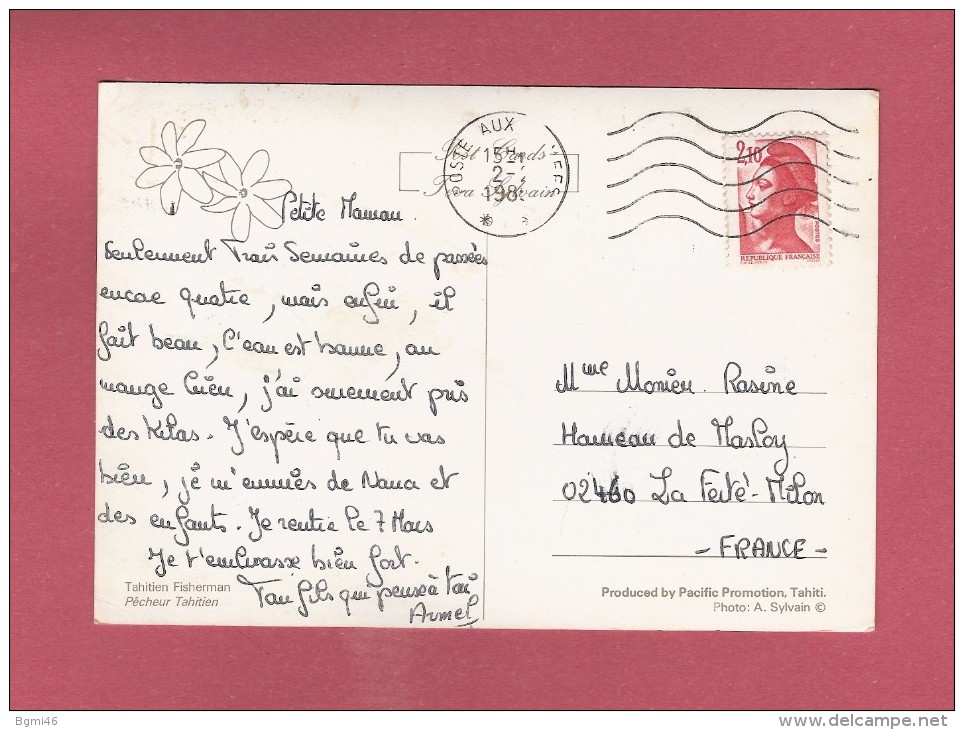 Petite Maman.
Seulement Trois Semaines de passées
encore quatre, mais enfin, il
fait beau, l'eau est bonne, on
mange bien, j'ai surement pris
des Kilos. J'espère que tu vas
bien, je m'ennuies de Nana et
des enfants. Je rentre le 7 Mars
Je t'embrasse bien fort.
Ton fils qui pense à toi
Armel
Tahitien Fisherman
Pêcheur Tahitien
POSTE AUX
15H
2-
198
Post Cards
Teva Sylvain
2,10
POSTES
REPUBLIQUE FRANCAISE
Mme Monieu Rasine
Hameau de Masloy
02460 La Ferté-Milon
- FRANCE -
Produced by Pacific Promotion, Tahiti.
Photo: A. Sylvain ©
Bgmi46
www.delcampe.net